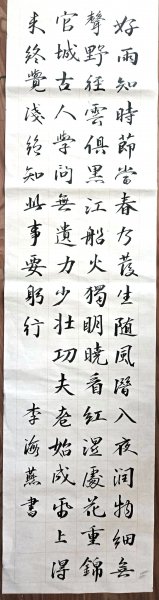 好雨知時節當春乃發生随風潛入夜润物細無
聲野径雲俱黑江船火獨明曉看红湿處花重錦
官城古人學问無遺力少壮功夫老始成纸上得
来终覺淺绝知此事要躬行 李海燕書